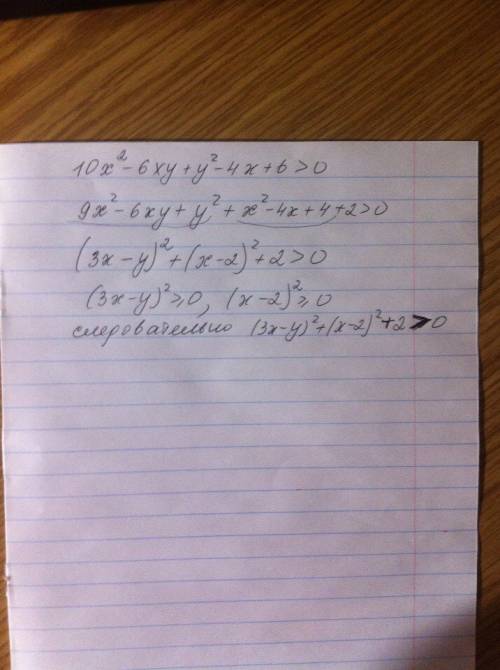 10x² - 6xy + y² - 4x + 6 > 0
9x² - 6xy + y² + x² - 4x + 4 + 2 > 0
(3x - y)² + (x - 2)² + 2 > 0
(3x - y)² ≥ 0, (x - 2)² ≥ 0
следовательно (3x - y)² + (x - 2)² + 2 > 0